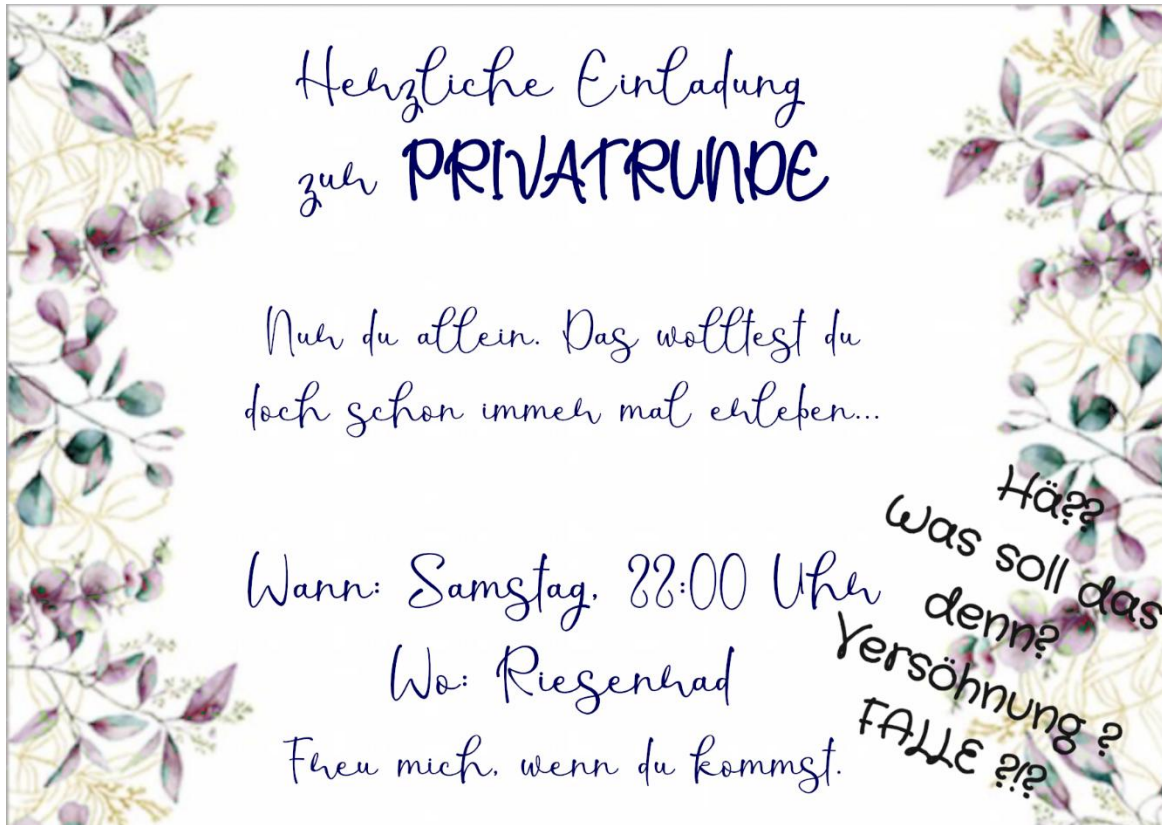 Herzliche Einladung
zur PRIVATRUNDE
Nur du allein. Das wolltest du
doch schon immer mal erleben...
Wann: Samstag, 22:00 Uhr
Wo: Riesenrad
Freu mich, wenn du kommst.
Hä??
Was soll das
denn?
Versöhnung ?
FALLE ?!?